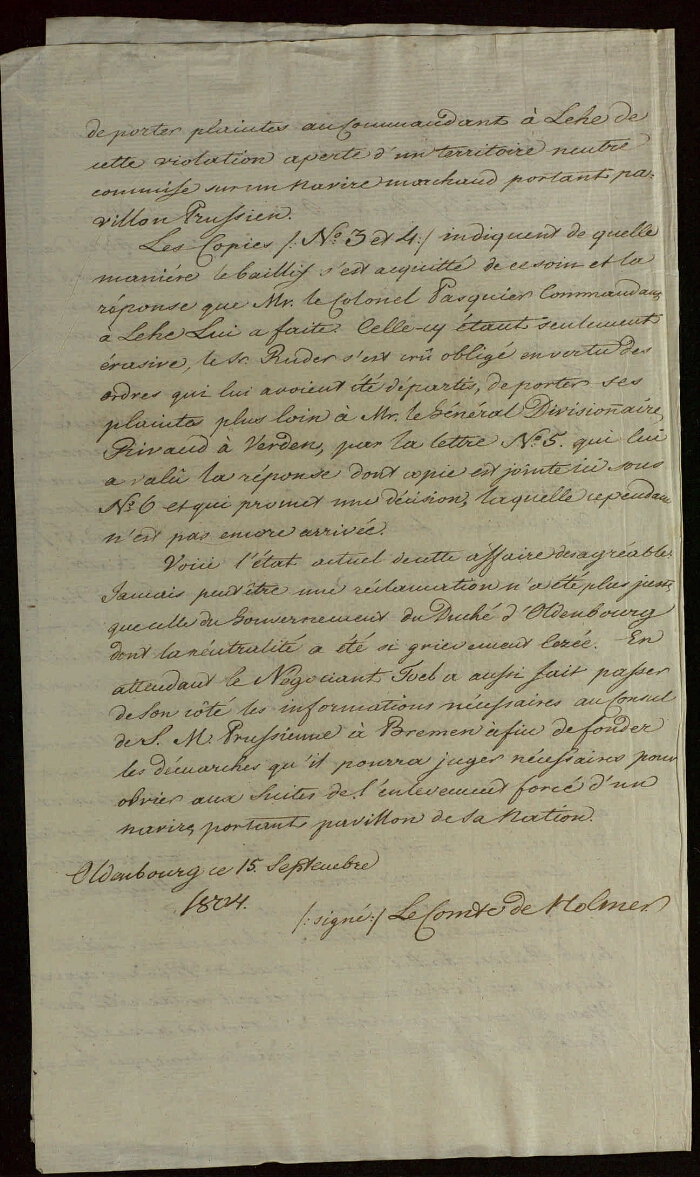 de porter plaintes au Commandant à Lehe de
cette violation aperte d'un territoire neutre
commise sur un navire marchand portant pa-
villon Prussien.
Les Copies /: No. 3 et 4 :/ indiquent de quelle
maniére le baillif s'est acquitté de ce soin et la
réponse que Mr. le Colonel Pasquier Commandant
à Lehe Lui a faite. Celle-cy étant seulement
évasive, le Sr. Ruder s'est crû obligé en vertu des
ordres qui lui avoient été départis, de porter ses
plaintes plus loin à Mr. le Général Divisionnaire
Rivaud à Verden, par la lettre No. 5. qui lui
a valû la réponse dont copie est jointe ici sous
No. 6 et qui promet une décision, laquelle cependant
n'est pas encore arrivée.
Voici l'état actuel de cette affaire desagréable.
Jamais peut être une réclamation n'a été plus juste
que celle du Gouvernement du Duché d'Oldenbourg
dont la néutralité a été si grievement lezée. En
attendant le Négociant a aussi fait passer
de son côté les informations nécessaires au Consul
de S. M. Prussienne à Bremen afin de fonder
les démarches qu'il pourra juger nécessaires pour
obvier aux suites de l'enlevement forcé d'un
navire, portant pavillon de sa Nation.
Oldenbourg ce 15. Septembre
1804.
/: signé :/ Le Comte de Holmer